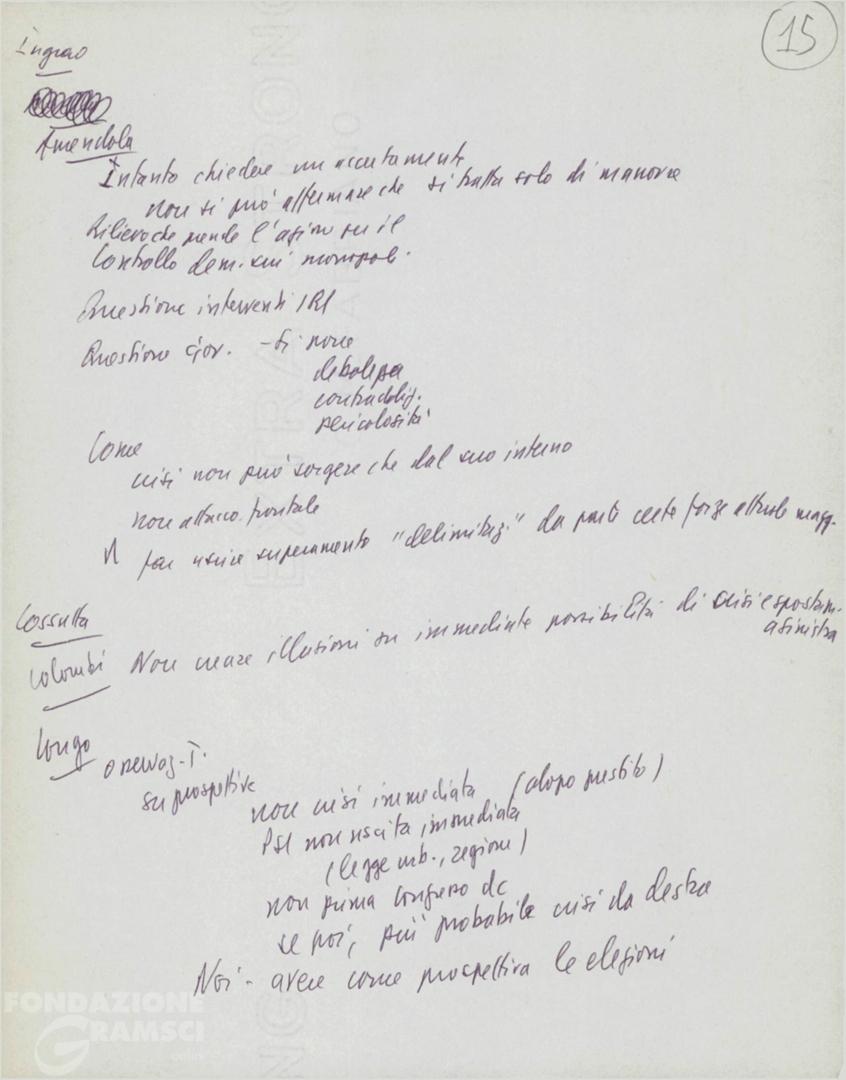 15
Ingrao
Amendola
Intanto chiedere un accertamento
non si può affermare che si tratta solo di manovre
Rilievo che prende l'azione su il
Controllo dem. sui monopoli.
Questione interventi IRI
Questione Gov. - Si pone
debolezza
contraddiz.
pericolosità
Come
crisi non può sorgere che dal suo interno
non attacco frontale
far uscire superamento "delimitaz." da parte certe forze attuale magg.
Cossutta
Colombi Non creare illusioni su immediate possibilità di crisi e spostam.
a sinistra
Longo
osservaz. T.
su prospettive
non crisi immediata (dopo prestito)
PSI non uscita immediata
(legge urb., regioni)
non prima Congresso dc
se poi, più probabile crisi da destra
Noi - avere come prospettiva le elezioni
FONDAZIONE
GRAMSCI
onlus
EXTRA STRONG